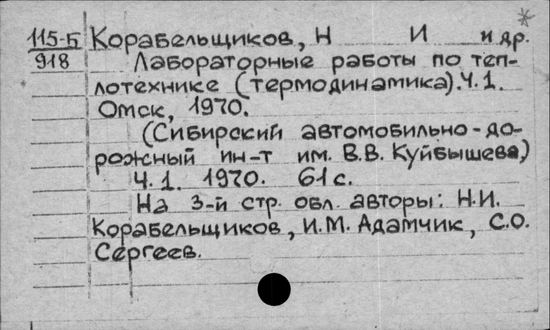 115-Б Корабельщиков, Н И и др.
918 Лабораторные работы по теп-
лотехнике (термодинамика). Ч.1.
Омск, 1970.
(Сибирский автомобильно-до-
рожный ин-т им. В.В. Куйбышева)
Ч.1. 1970. 61 с.
На 3-й стр. обл. авторы: Н.И.
Корабельщиков, И.М. Адамчик, С.О.
Сергеев.